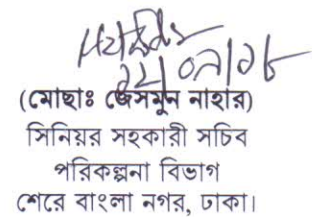 (মোছাঃ জেসমুন নাহার)
সিনিয়র সহকারী সচিব
পরিকল্পনা বিভাগ
শেরে বাংলা নগর, ঢাকা।